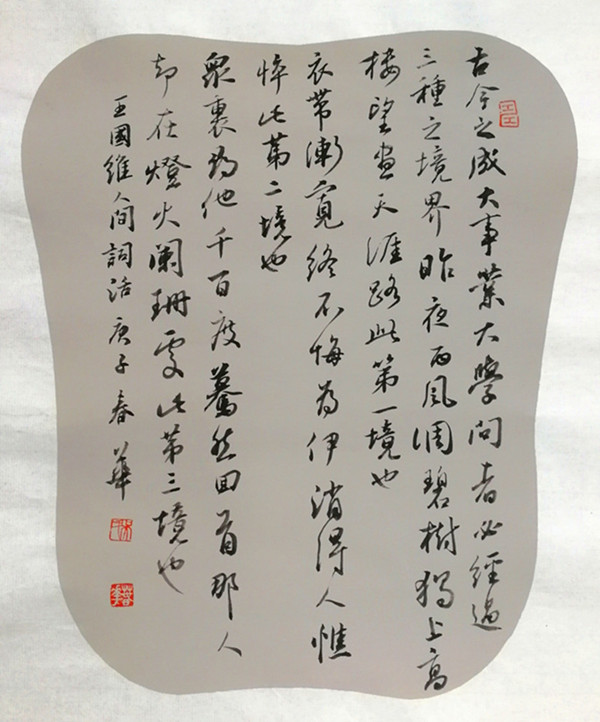 古今之成大事業大學問者必經過
三種之境界昨夜西風凋碧樹獨上高
樓望盡天涯路此第一境也
衣帶漸寬終不悔為伊消得人憔
悴此第二境也
眾裏尋他千百度驀然回首那人
却在燈火闌珊處此第三境也
王國維人間詞話庚子春華